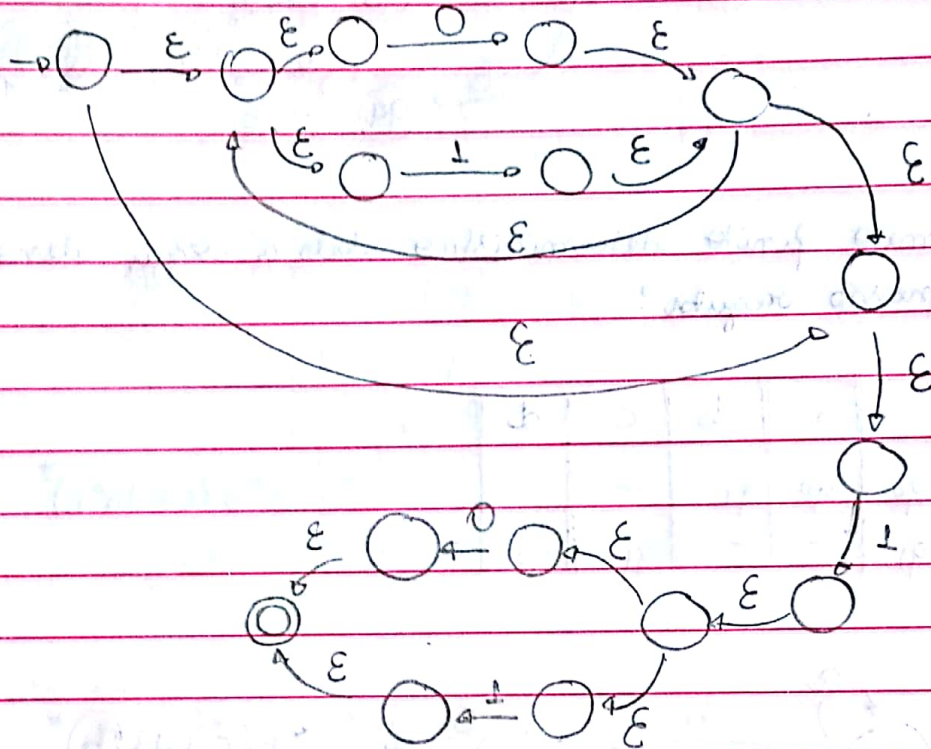 ε ε 0 ε
ε 1 ε
ε
ε
ε
ε
1
ε 0 ε
ε
ε 1 ε